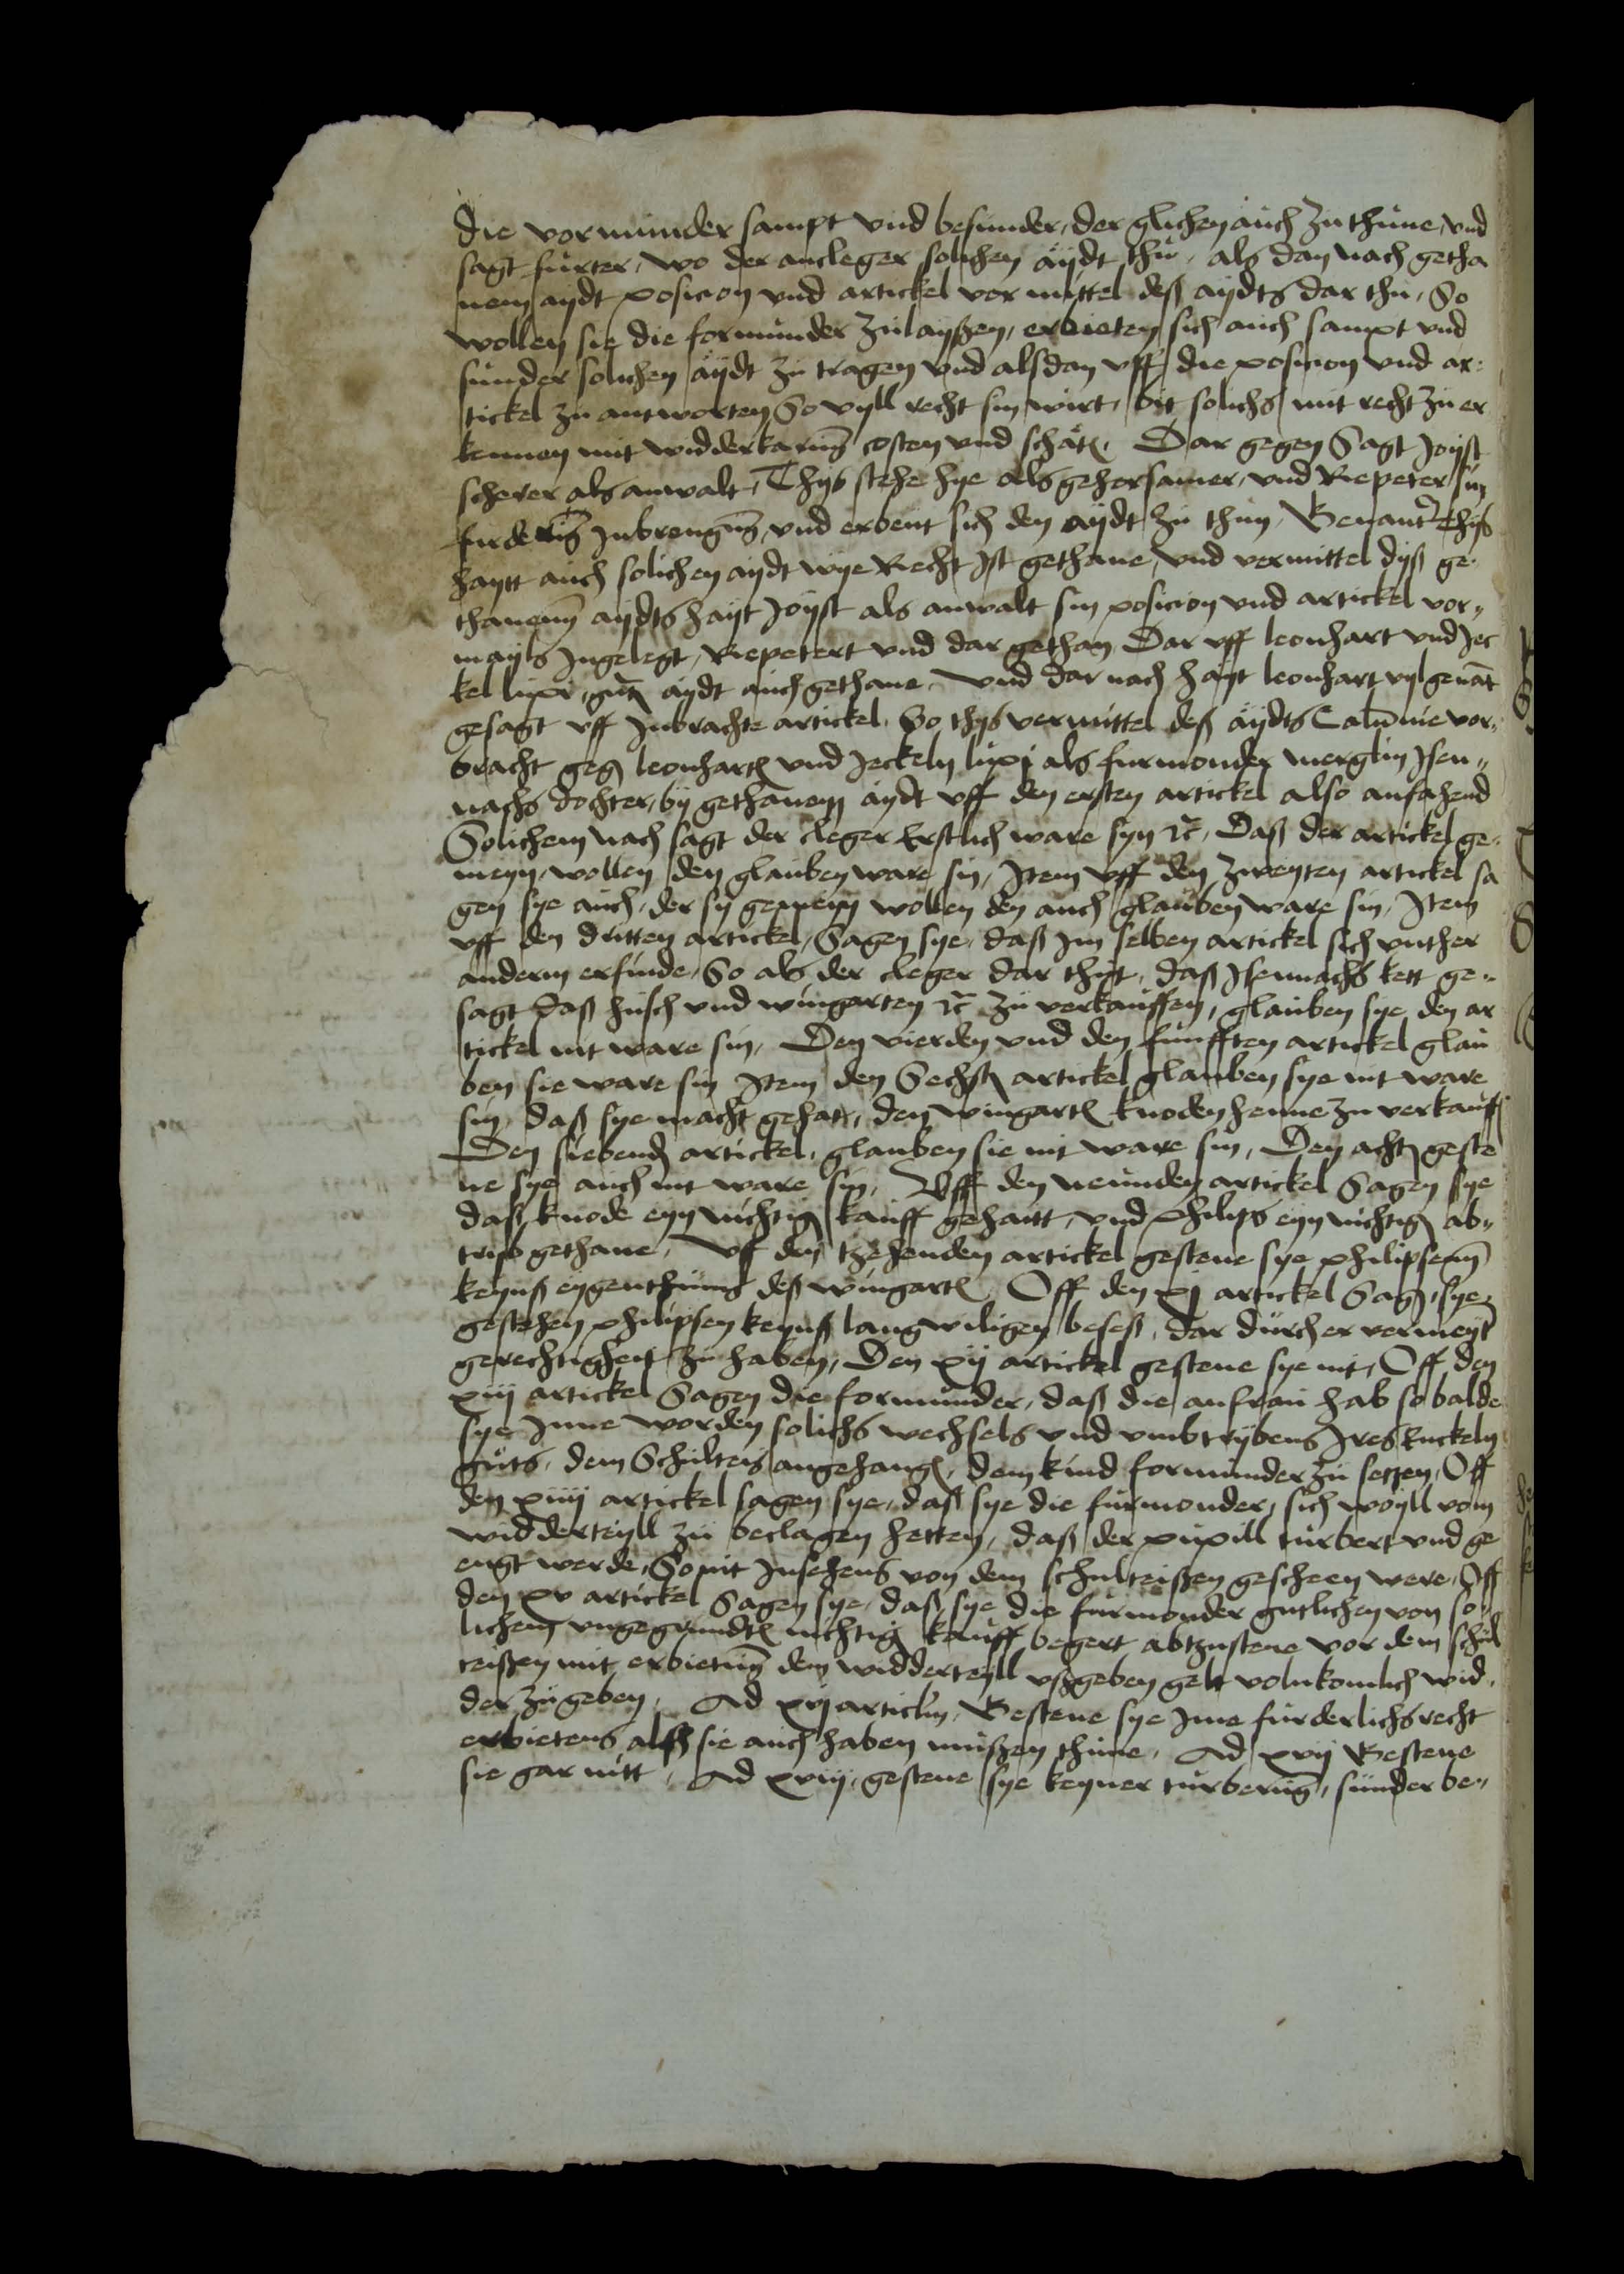 die vormunder sampt vnd besunder, der glichen auch zu thune, vnd
sagt furter, wo der ancleger solichen aydt thu, als dan nach getha
nem aydt posicion vnd artickel vor mittel deß aydts dar thu, So
wollen sie die formunder zulayßen, erbieten sich auch sampt vnd
sunder solichen aydt zu tragen vnd alsdan vff die posicion vnd ar-
tickel zu antworten So vyll recht sin wirt, bit solichs mit recht zu er
kennen mit widderkarung costen vnd schäd. Dar gegen Sagt Joyst
scherer als anwalt, Thijs stehe hye als gehorsamer, vnd Repeter sin
furderig Jnbrengung vnd erbeut sich den aydt zu thun, Benantr Thijs
haytt auch solichen aydt wye Recht Jst gethane, vnd vermittel dyß ge-
thanem aydts hayt Joyst als anwalt sin posicion vnd artickel vor-
mayls Jngelegt, Repetert vnd dar gethan, Dar vff leonhart vnd Jec
kel lupi, aydt auch gethane, Vnd dar nach hayt leonhart vylgenāt
gesagt vff Jnbrachte artickel, So thijs vermittel deß aydts Calūnie vor-
bracht gegen leonhart vnd Jeckeln lupi als furmonder merglin Jsen-
nachs dochter, by gethanem aydt vff den ersten artickel also anfahend
Solichem nach sagt der cleger Erstlich ware syn etc, Daß der artickel ge-
meyn, wollen den glauben ware sin, Jtem vff den zweyten artickel sa
gen sye auch, der sy gemeyn wollen den auch glauben ware sin, Jtem
vff den dritten artickel, Sagen sye, daß jm selben artickel sich vnther
anderm erfinde, So als der cleger dar thut, daß Jsennachs kett ge-
sagt daß husch vnd wingarten etc zu verkauffen, glauben sye den ar
tickel nit ware sin, Den vierden vnd den funfften artickel glau
ben sie ware sin Jtem den Sechst artickel glauben sye nit ware
sin, daß sye macht gehat, den wingart knoden henne zu verkauff
Den siebend artickel, glauben sie nit ware sin, Den acht geste
ne sye auch nit ware sin, Vff den neunden artickel Sagen sye
daß knode eyn nichtig kauff gehaitt, vnd philips eyn nichtig ab-
trijb gethane, Vff den tzehenden artickel gestene sye philipsem
keynß eygenthums deß wingart, Off den xj artickel Sag sye,
gestehen philipsen keynß langwiligen beseß, dar durch er vermeyt
gerechtigheit zu haben, Den xij artickel gestene sye nit, Off den
xiij artickel Sagen die formunder, daß die anfrau hab so balde
sye Jnne worden solichs wechsels vnd vmbtrybens Jres Enckeln
guts, dem Schulteis angehang, dem kind formunder zu setzen, Off
den xiiij artickel sagen sye, daß sye die furmonder, sich woyll vom
widderteyll zu beclagen hetten, daß der pupill turbert vnd ge
engt werde, So nit Jnsehens von dem schulteißen gescheen were, Off
den xv artickel Sagen sye, daß sye die furmonder gutlichen von so-
lichem vngegrundt nichtig kauff begert abtzustene vor dem schul
teißen mit erbietung dem widderteyll vßgeben gelt volnkomlich wid-
der zu geben, Ad xvj articlm, Gestene sye Jme furderlichs recht
erbietens alß sie auch haben mußen thune, Ad xvij Gestene
sie gar nitt, Ad xviij, gestene sye keyner turberung, sunder be-